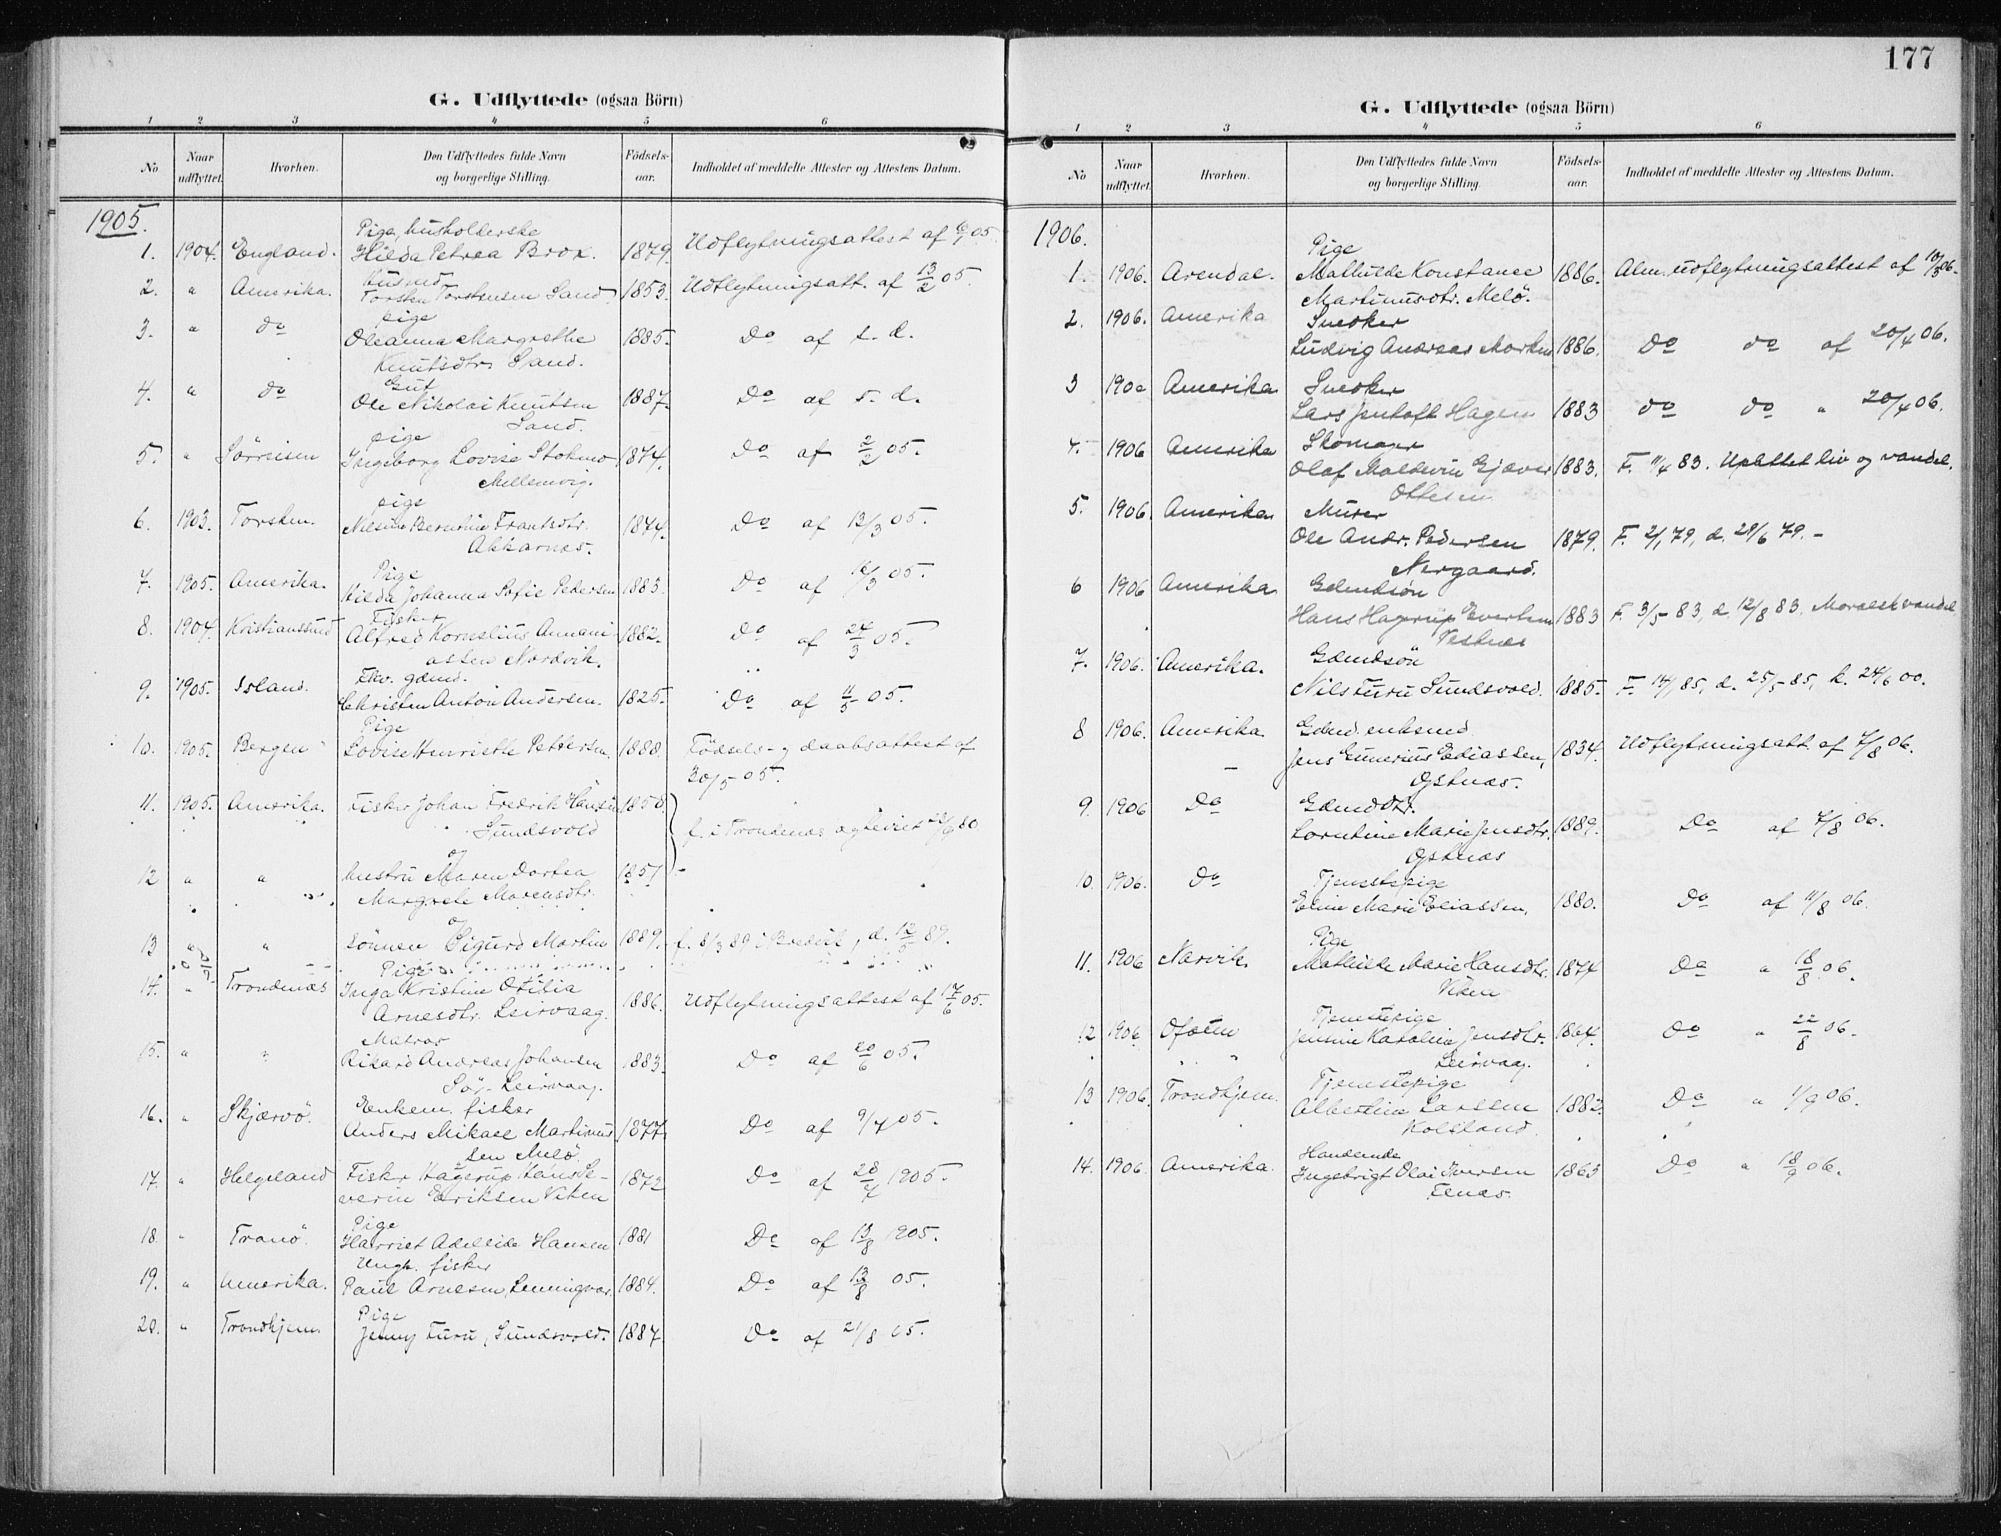 G. Udflyttede (ogsaa Börn)
1 2 3 4 5 6
No Naar udflyttet. Hvorhen. Den Udflyttedes fulde Navn og borgerlige Stilling. Födsels-aar. Indholdet af meddelte Attester og Attestens Datum.
1905.
Pige, husholderske
1. 1904. England. Hilda Petrea Brox. 1879. Udflytningsattest af 6/1 05.
Husmd
2. " Amerika. Torsten Torstensen Sand, 1853. Udflytningsatt. af 13/2 05.
pige
3. " do Oleanna Margrethe 1885. Do af s. d.
Knutsdtr Sand.
Gut
4. " do Ole Nikolai Knutsen 1887. Do af s. d.
Sand.
pige
5. " Sörreisen Ingeborg Lovise Stokmo 1874. Do af 2/2 05.
Mellemvig.
pige
6. 1903. Torsken. Nilsine Berntine Frantsdtr. 1874. Do af 13/3 05.
Akkarnæs.
Pige
7. 1905. Amerika. Hilda Johanna Sofie Pedersen 1883. Do af /3 05.
Fisker
8. 1904. Kristianssund Alfred Kornelius Annani- 1882. Do af 24/3 05.
assen Nordvik.
Ekv. gdmd.
9. 1905. Island. Christen Anton Andersen. 1825. Do af 11/5 05.
Pige
10. 1905. Bergen Lovise Henriette Pettersen. 1888. Födsels- og daabsattest af
30/5 05.
11. 1905. Amerika. Fisker Johan Fredrik Hansen 1850
Sundsvold f. i Trondenæs og beviet /9 80
og
12 " " hustru Maren Dortea 1851
Margrete Morensdtr.
og
13 " " sönnen Sigurd Martin 1889. f. 8/3 89 i Bredvik, d. 12/5 89.
Pige
14. " Trondenæs Inga Kristine Otilia 1886. Udflytningsattest af 17/6 05.
Arnesdtr. Leirvaag.
Matros
15. " " Rikard Andreas Johansen 1883. Do af 20/6 05.
Sör-Leirvaag.
Enkem. fisker
16. " Skjærvö. Anders Mikael Martinus 1877. Do af 9/7 05.
sen Melö
17. " Helgeland Fisker Hagerup Hans Se- 1872 Do af 28/7 1905.
verin Eriksen Viken
Pige
18. " Tranö. Harriet Adelide Hansen 1881 Do af 13/8 1905.
Ungk. fisker
19. " Amerika. Paul Arnesen, Lemmingvær. 1884. Do af 13/8 05.
Pige
20. " Trondhjem Jenny Furu, Sundsvold. 1887 Do af 21/8 05.
177
G. Udflyttede (ogsaa Börn)
1 2 3 4 5 6
No Naar udflyttet. Hvorhen. Den Udflyttedes fulde Navn og borgerlige Stilling. Födsels-aar. Indholdet af meddelte Attester og Attestens Datum.
1906.
Pige
1. 1906. Arendal. Mathilde Konstanse 1886. Alm. udflytningsattest af 10/3 06.
Martinusdtr. Melö.
2. 1906. Amerika Snedker
Ludvig Andreas Morken 1886. Do do af 20/4 06.
3 1906 Amerika Snedker
Lars Jentoft Hagen 1883 do do " 20/4 06.
4. 1906 Amerika Skomager
Olaf Maldvin Gjæver 1883. F. 11/4 83. Uplettet liv og vandel.
Ottesen
5. 1906. Amerika Murer
Ole Andr. Pedersen 1879. F. 2/1 79, d. 28/6 79. -
Nergaard.
6 1906 Amerika Gdmdsön
Hans Hagerup Evertsen 1883 F. 3/5 83, d. 12/8 83. Moralsk vandel
Vestnes
7. 1906. Amerika. Gdmdsön
Nils Furu Sundsvold. 1885. F. 14/1 85, d. 25/5 85, k. 24/6 00.
8 1906. Amerika Gdmd. enkemd
Jens Gunerius Ediassen, 1834. Udflytningsatt. af 7/8 06.
Ostnæs.
9. 1906 Do Gdmddtr.
Lorntine Marie Jensdtr. 1889. Do af 7/8 06.
Ostnæs
10. 1906. Do Tjenestepige
Eline Marie Eliassen, 1880. Do af 11/8 06.
Pige
11. 1906 Narvik. Mathilde Marie Hansdtr. 1874 Do " 18/8 06.
Viken
Tjenestepige
12 1906. Ofoten Jensine Karoline Jensdtr. 1864. Do " 22/8 06.
Leirvaag.
Tjenestepige
13 1906. Trondhjem. Albertine Larssen 1882. Do " 1/9 06.
Kolsland.
Handlende
14. 1906. Amerika. Ingebrigt Olai Iversen 1863 Do " 18/9 06.
Tenæs.